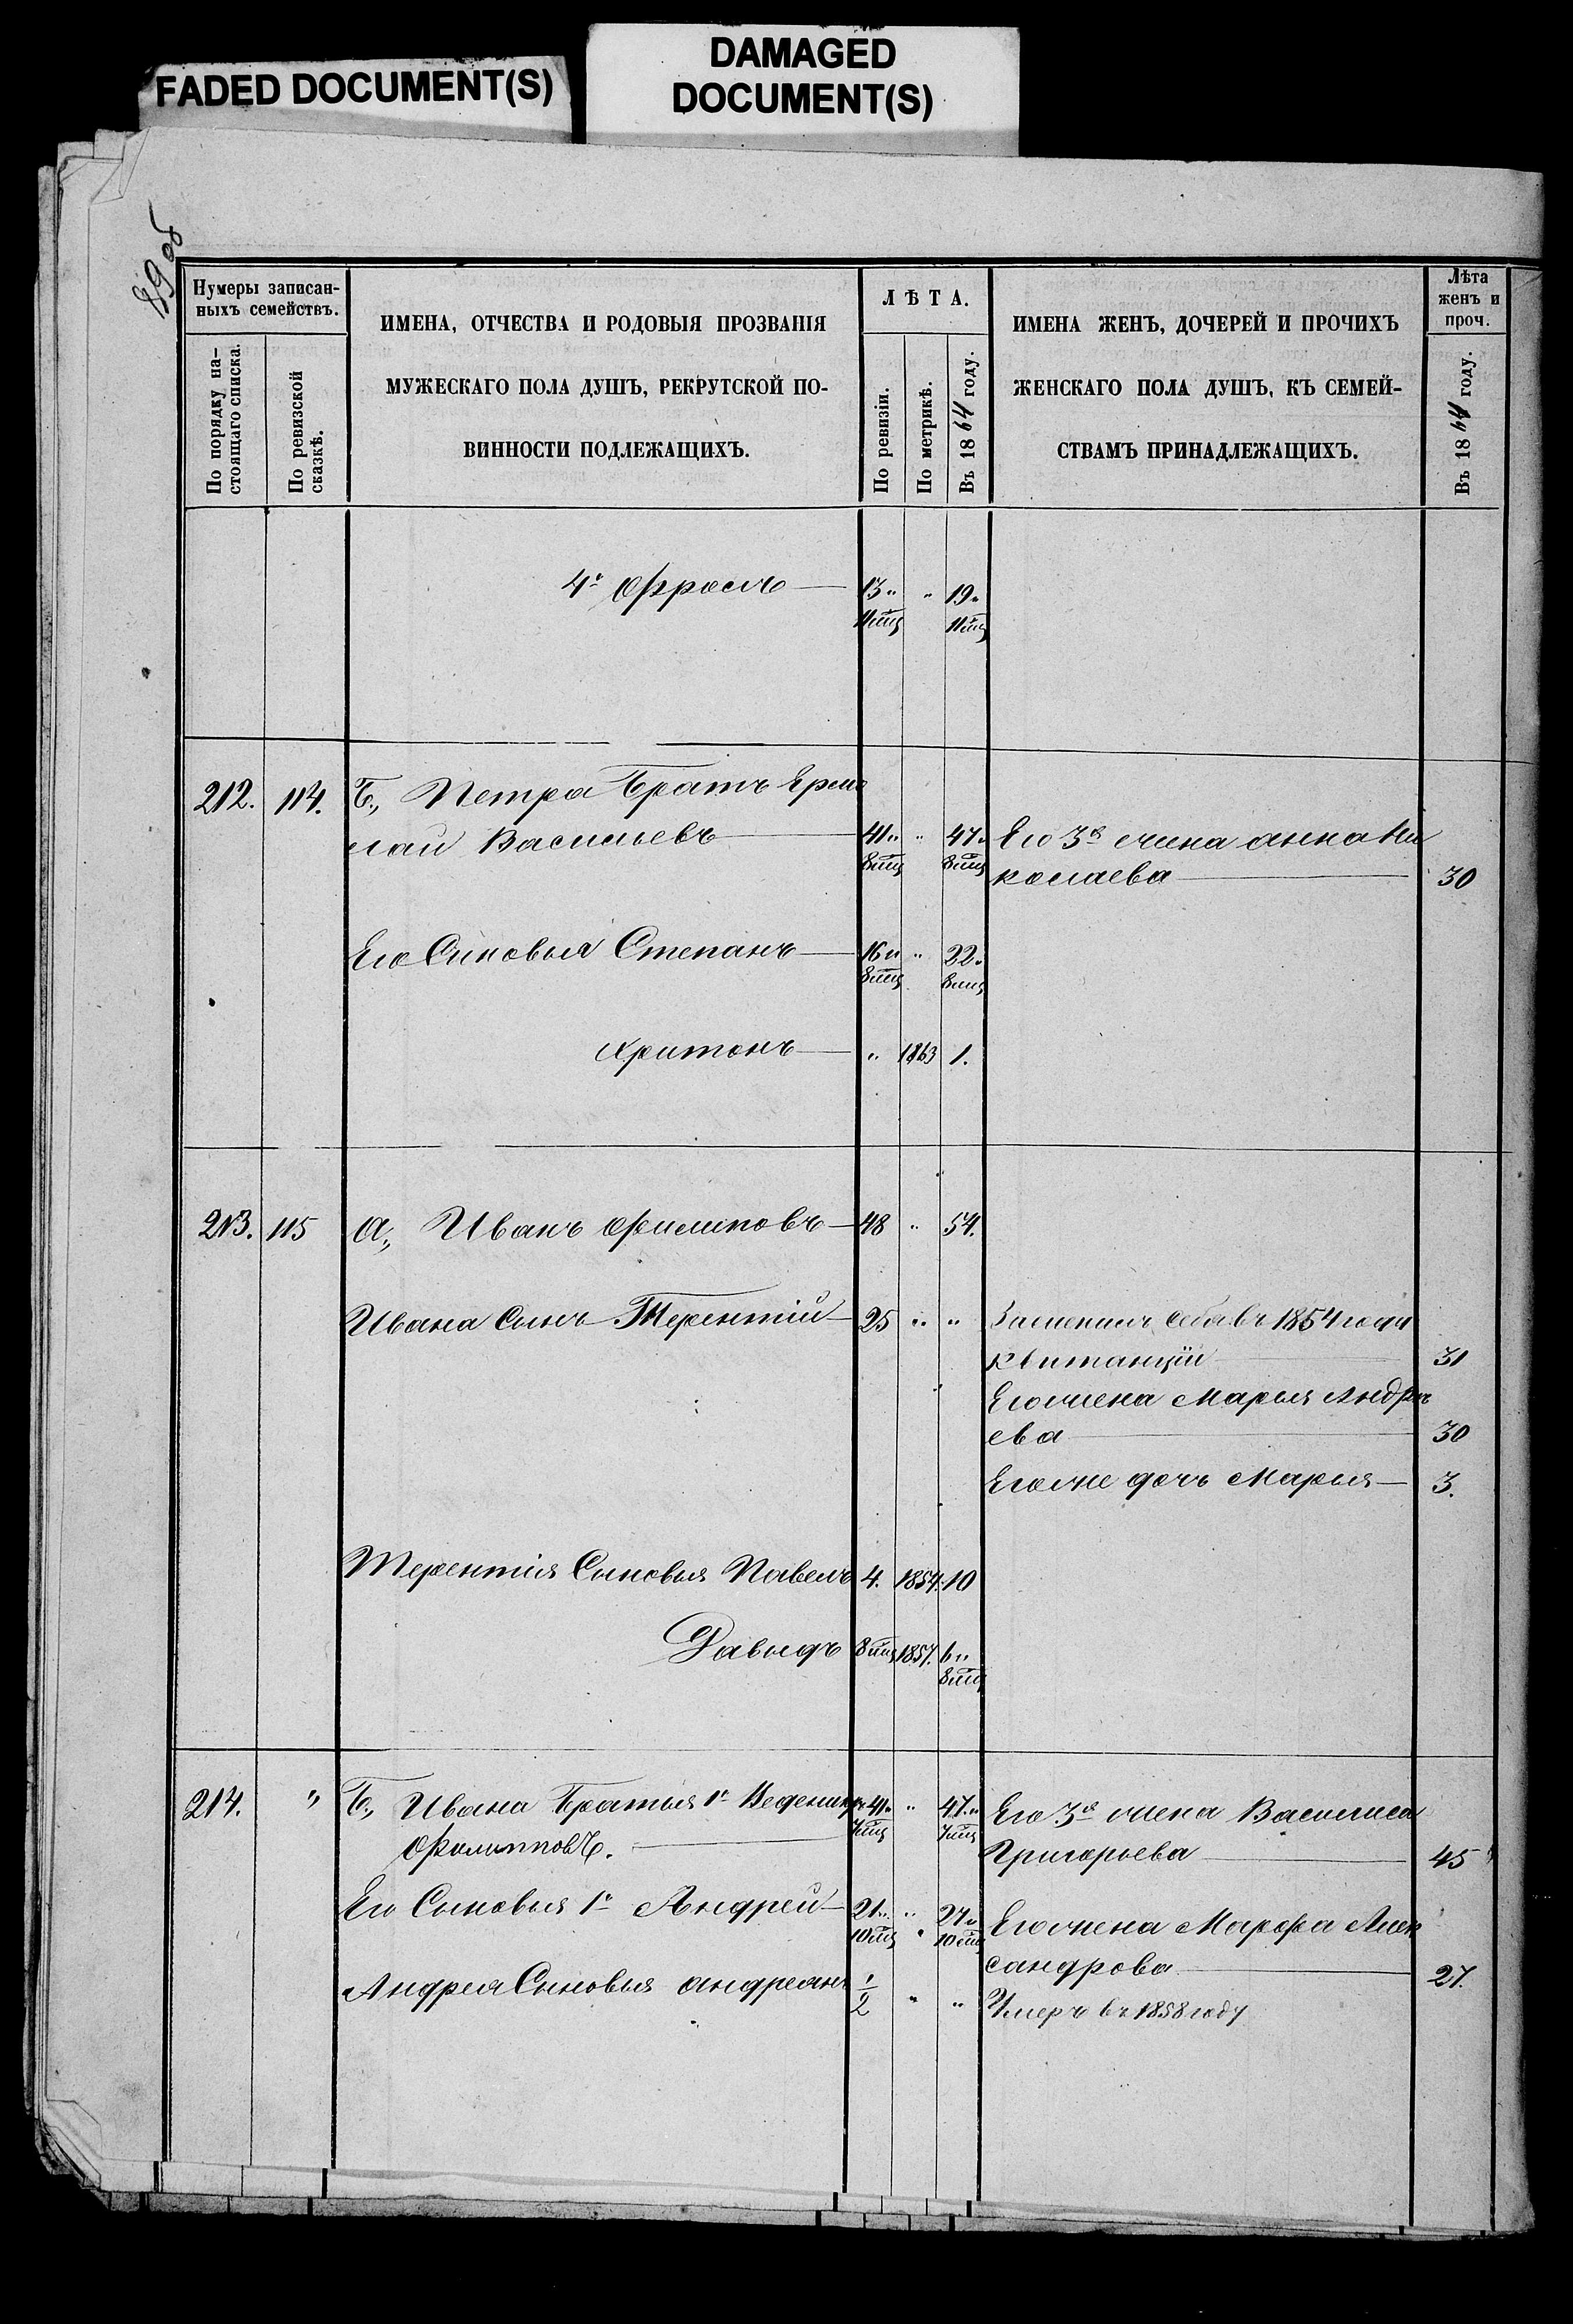 FADED DOCUMENT(S)
DAMAGED
DOCUMENT(S)
89 об
Нумеры записан-
ныхъ семействъ.
По порядку на-
стоящаго списка.
По ревизской
сказкѣ.
ИМЕНА, ОТЧЕСТВА И РОДОВЫЯ ПРОЗВАНІЯ
МУЖЕСКАГО ПОЛА ДУШЪ, РЕКРУТСКОЙ ПО-
ВИННОСТИ ПОДЛЕЖАЩИХЪ.
ЛѢТА.
По ревизіи.
По метрикѣ.
Въ 1864 году.
ИМЕНА ЖЕНЪ, ДОЧЕРЕЙ И ПРОЧИХЪ
ЖЕНСКАГО ПОЛА ДУШЪ, КЪ СЕМЕЙ-
СТВАМЪ ПРИНАДЛЕЖАЩИХЪ.
Лѣта
женъ и
проч.
Въ 1864 году.
4й Фролъ 13 " 19
11 мц 11 мц
212. 114. Б, Петра Братъ Ермо
лай Васильевъ 41 " 47 Его 3я жена Анна Ни
8 мц 8 мц колаева 30
Его Сыновья Степанъ 16 " 22
8 мц 8 мц
Критонъ " 1863 1.
213. 115 а, Иванъ Филиповъ 48 " 54.
Ивана Сынъ Терентій 25 " " Замененъ себя въ 1854 году
квитанціи 31
Его жена Марья Андре
ева 30
Его же дочь Марья 3.
Терентія Сыновья Павелъ 4. 1854. 10
Давыдъ 8 мц 1857. 6
8 мц
214. " Б, Ивана Братья 1й Веденихтъ 41 " 47 Его 3я жена Василиса
Филипповъ. 7 мц 7 мц Григорьева 45
Его Сыновья 1й Андрей 21 " 27 Его жена Марфа Алек
10 мц " 10 мц сандрова 27.
Андрея Сыновья Андреянъ 1/2 " " Умеръ въ 1858 году